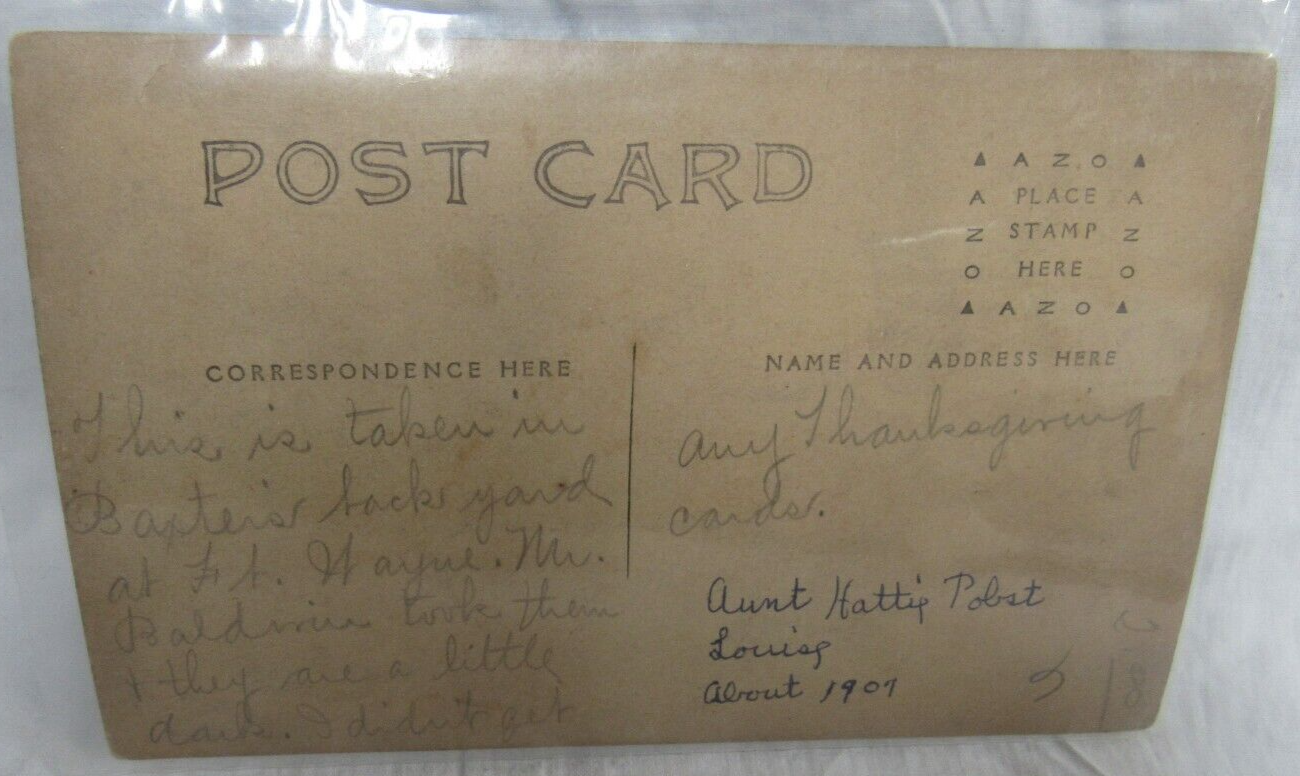 POST CARD
▲ A Z O ▲
A PLACE A
Z STAMP Z
O HERE O
▲ A Z O ▲
CORRESPONDENCE HERE
This is taken in
Baxter's back yard
at Ft. Wayne. Mr.
Baldwin took them
+ they are a little
dark. I didn't get
NAME AND ADDRESS HERE
any Thanksgiving
cards.
Aunt Hattie Pobst
Louise
About 1907